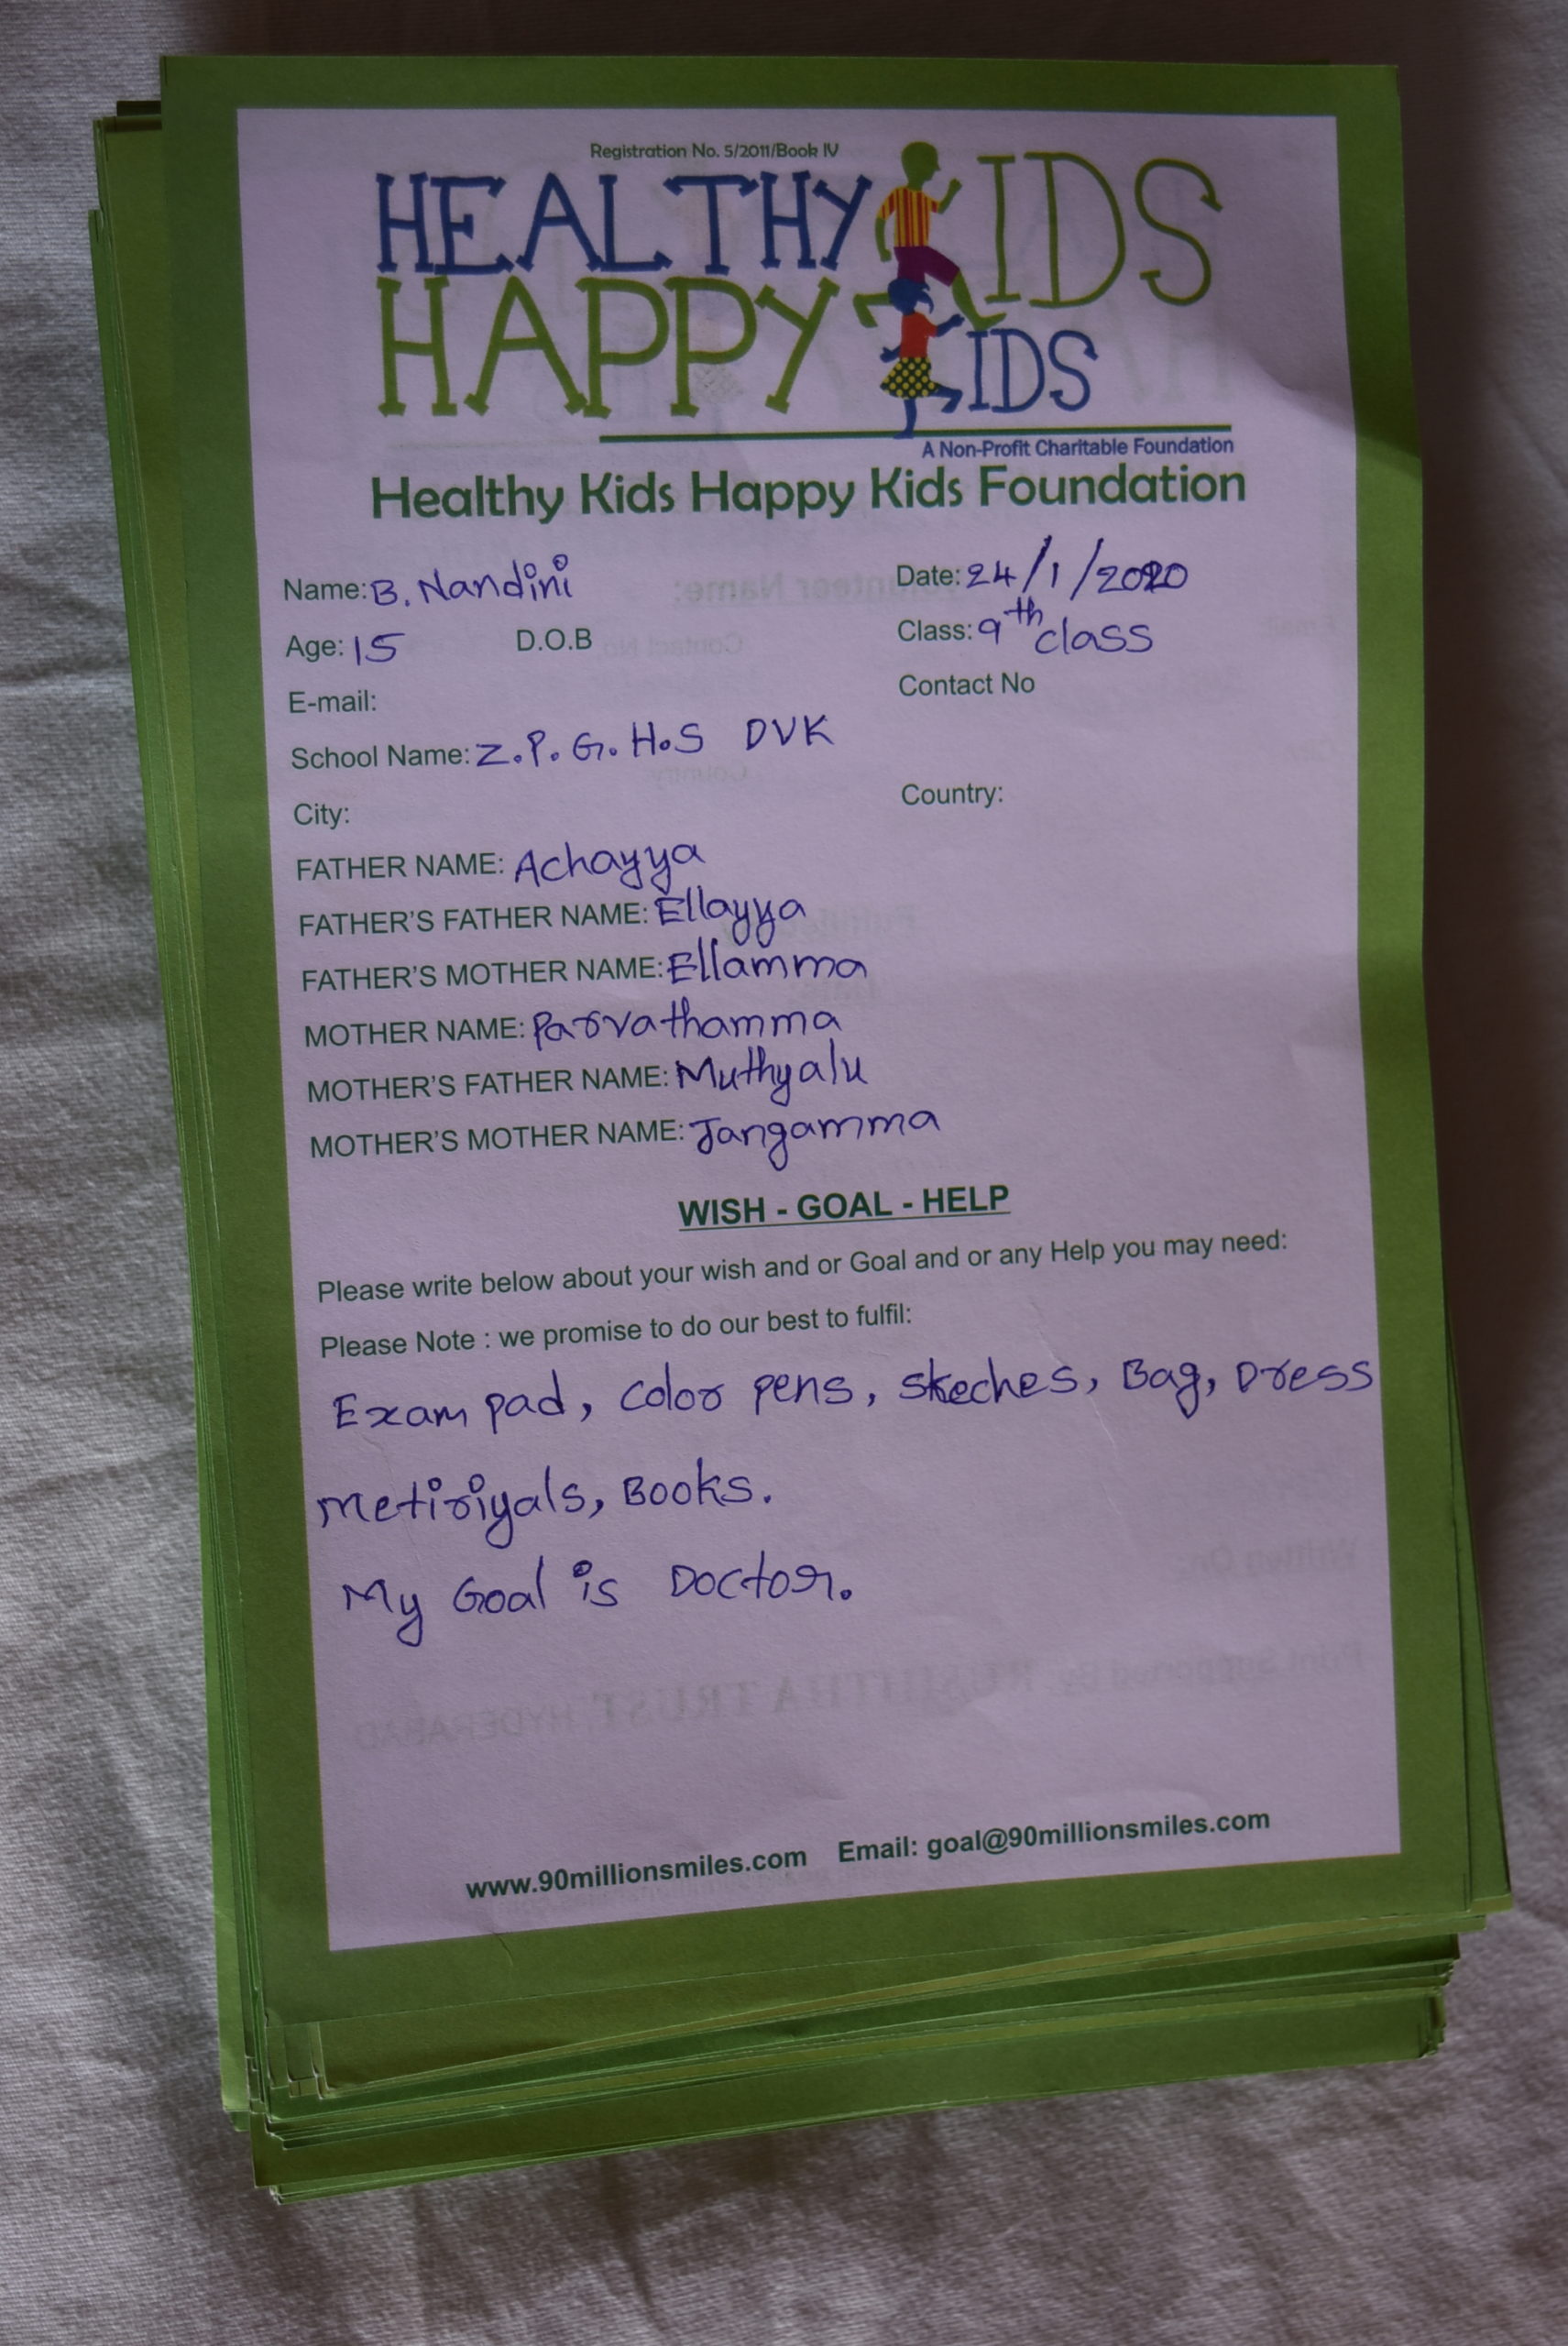 Registration No. 5/2011/Book IV
HEALTHY KIDS
HAPPY KIDS
A Non-Profit Charitable Foundation
Healthy Kids Happy Kids Foundation
Name: B. Nandini Date: 24/1/2020
Age: 15 D.O.B Class: 9th class
E-mail: Contact No
School Name: Z.P.G.H.S DVK
City: Country:
FATHER NAME: Achayya
FATHER'S FATHER NAME: Ellayya
FATHER'S MOTHER NAME: Ellamma
MOTHER NAME: Parvathamma
MOTHER'S FATHER NAME: Muthyalu
MOTHER'S MOTHER NAME: Jangamma
WISH - GOAL - HELP
Please write below about your wish and or Goal and or any Help you may need:
Please Note : we promise to do our best to fulfil:
Exam pad, Color pens, skeches, Bag, Dress
Metiriyals, Books.
My Goal is Doctor.
www.90millionsmiles.com Email: goal@90millionsmiles.com